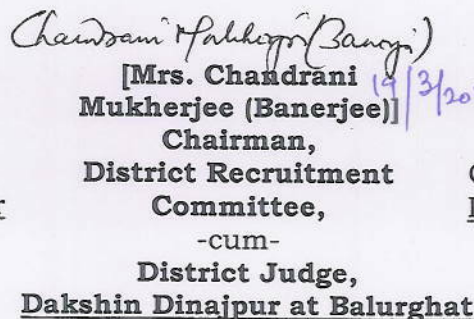 Chandrani Mukherjee (Banerji)
[Mrs. Chandrani 19/3/20
Mukherjee (Banerjee)]
Chairman,
District Recruitment
Committee,
-cum-
District Judge,
Dakshin Dinajpur at Balurghat